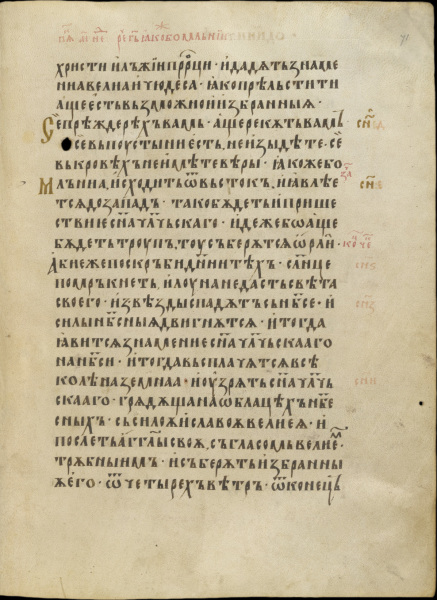 христи и лъжии прⷪ҇рци · и дадѧтъ знаме
ниа велиа и чюдеса · ꙗко прѣльстити
аще есть възможно и избранныѧ ·
Се прѣжде рѣхъ вамь · аще рекѫть вамь
се въ поустыни есть, не изыдѣте · се
въ кровѣхъ не имѣте вѣры · ꙗкоже бо
млънїи исходить ѿ въстокъ, и ꙗвлѣе
тсѧ до западъ · тако бѫдеть и прише
ствие сн҃а чл҃чьскаго · идеже бо аще
бѫдеть троупъ, тоу събератсѧ ѡрли ·
Абие же по скръби дн҃ии тѣхъ · слн҃це
помръкнеть, и лоуна не дасть свѣта
своего · и ѕвѣзды спадѫтъ съ нб҃се · и
силы нб҃сныѧ двигнѫтсѧ · и тогда
ꙗвитсѧ знамение сн҃а чл҃чьскааго
на нб҃си · и тогда въсплачѫтсѧ всѣ
колѣна земнаа · и оузрѧть сн҃а чл҃чь
скааго · грѧдѫща на ѡблацѣхъ нбе
сныхъ · съ силоѫ и славоѫ велиеѫ · и
послеть аг҃глы своѧ, съ гласомь велие
трѫбныимъ · и съберѫть избранны
ѧ его · ѿ четырехъ вѣтръ · ѿ конець